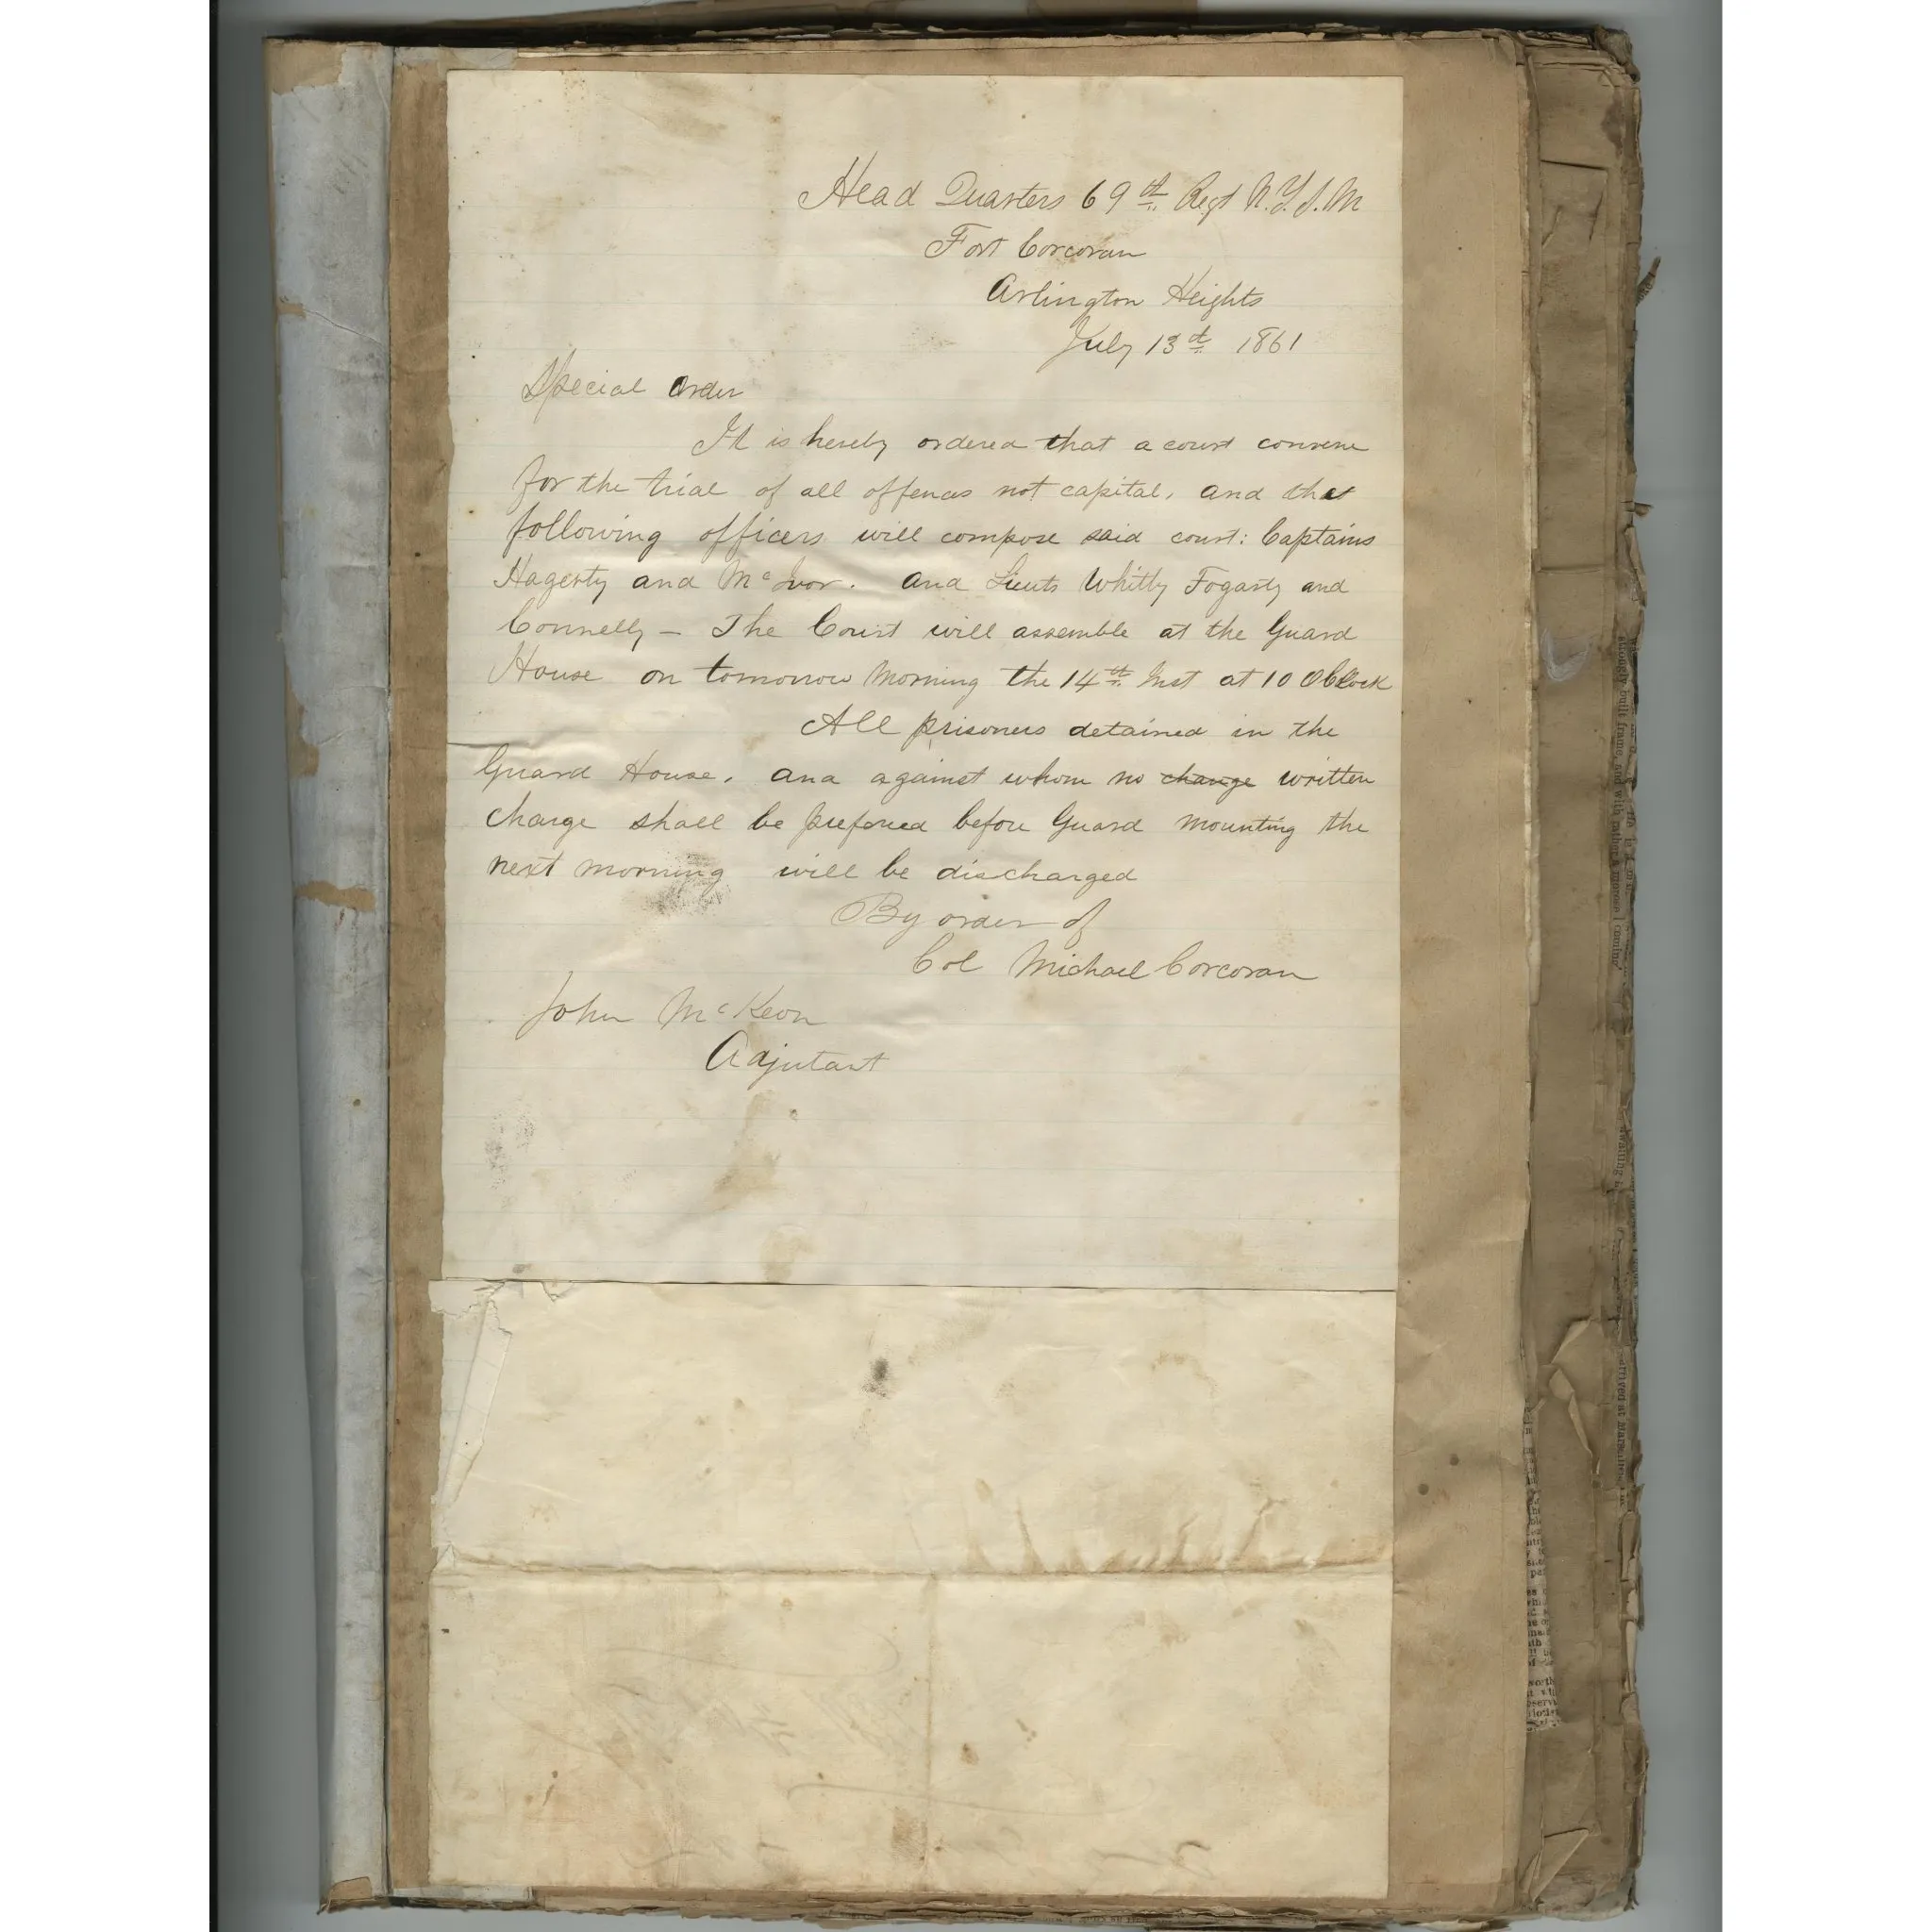 Head Quarters 69th Regt N.Y.S.M
Fort Corcoran
Arlington Heights
July 13th 1861
Special Order
It is hereby ordered that a court convene
for the trial of all offences not capital, and that
following officers will compose said court: Captains
Hagerty and McIvor. and Lieuts Whitty Fogarty and
Connelly – The Court will assemble at the Guard
House on tomorrow morning the 14th Inst at 10 OClock
All prisoners detained in the
Guard House, and against whom no change written
charge shall be prefered before Guard mounting the
next morning will be discharged
By order of
Col Michael Corcoran
John McKeon
Adjutant